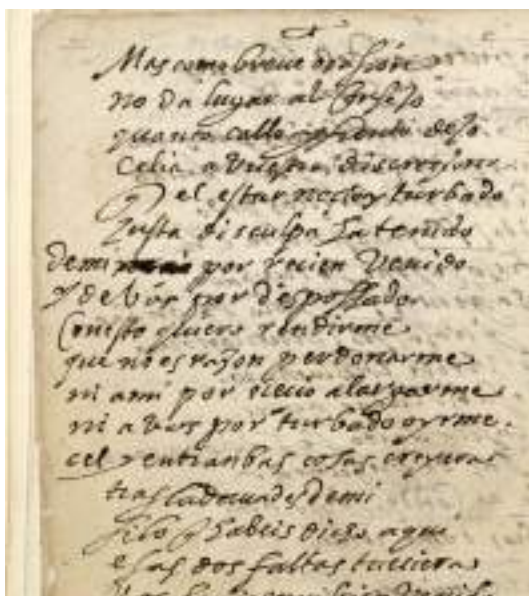 Mas como breve ocasion
no da lugar al
quanto callo y
Celia a vuestra discrecion
q el estar necio y turbado
Justa disculpa ha tenido
de mi por recien Venido
y de vos por desposado
Con esto quiero rendirme
que no es razon perdonarme
ni a mi por necio alargarme
ni a vos por turbado oyrme.
cel entranbas cosas creyera
tras de mi
si lo q habeis dicho aqui
esas dos faltas tuviera